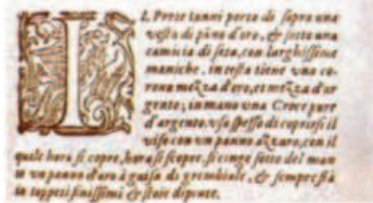 IL Prete Ianni porta di sopra una
veſta di pāno d'oro, & ſotto una
camicia di ſeta, con larghiſſime
maniche, in teſta tiene vna co-
rona mezza d'oro, et mezza d'ar
gento; in mano vna Croce pure
d'argento. vſa ſpeſſo di coprirſi il
viſo con vn panno azzuro, con il
quale hora ſi copre, hora ſi ſcopre. ſi cinge ſotto del man
to vn panno d'oro à guiſa di grembiale, & ſempre ſtà
in tappeti finiſſimi & ſtoie dipinte.